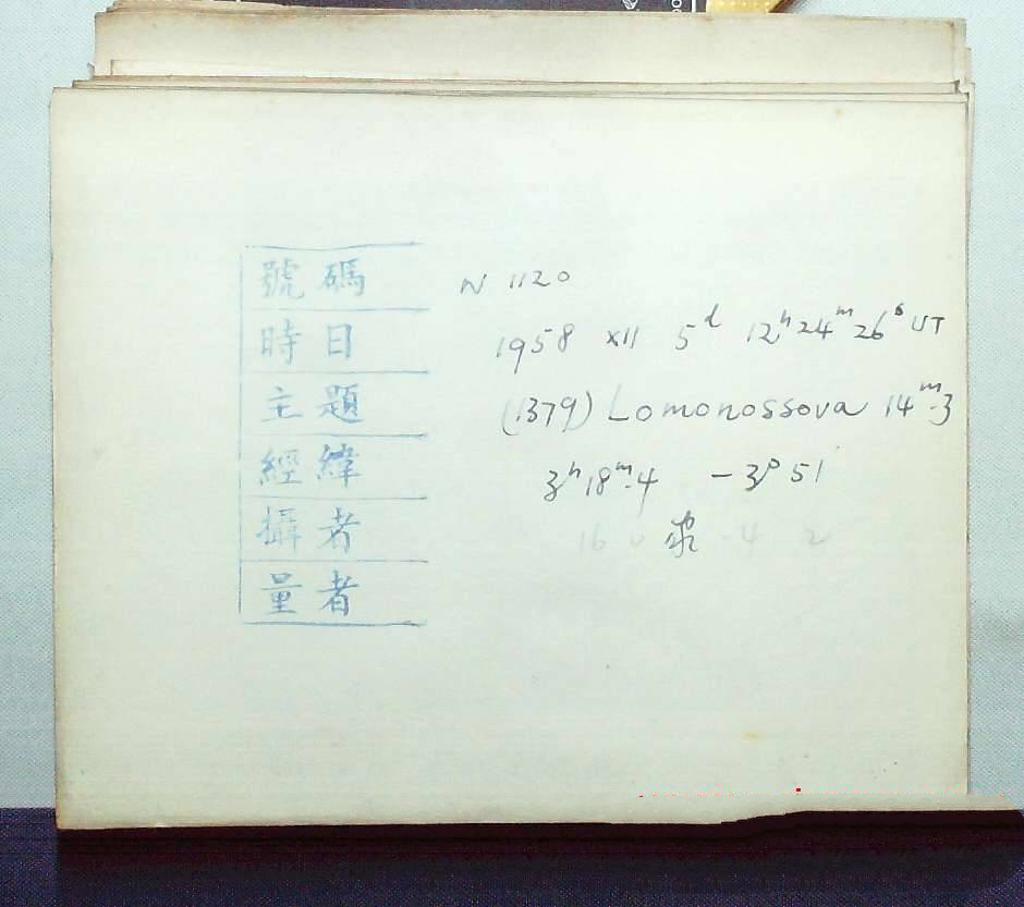 號碼 N 1120
時日 1958 XII 5ᵈ 12ʰ 24ᵐ 26ˢ UT
主題 (1379) Lomonossova 14ᵐ.3
經緯 3ʰ 18ᵐ.4 -3° 51'
攝者
量者